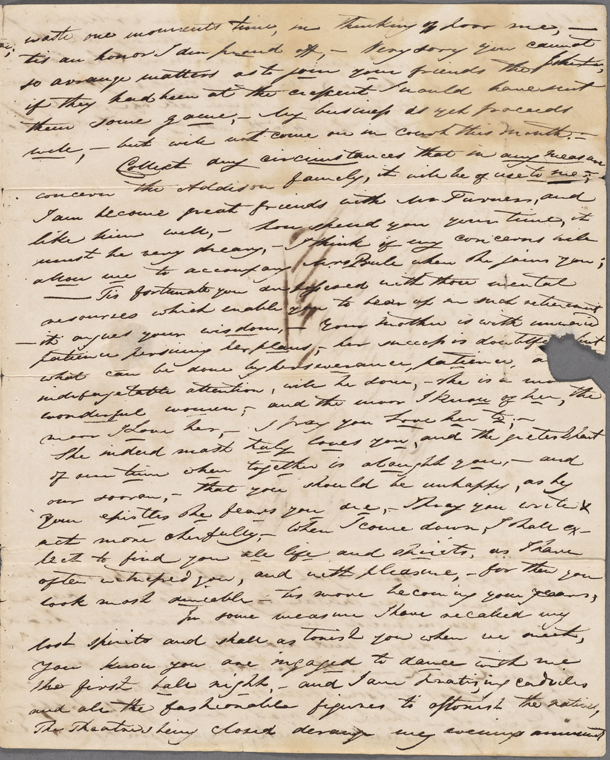 waste one moments time, in thinking of poor me, —
tis an honor I am proud off, — Very sorry you cannot
so arrange matters as to join your friends the
if they had been at the I would have sent
them some game, — My business as yet proceeds
well, — but will not come on in court this month, —
Collect any circumstances that in any measure
concern the Addison family, it will be of use to me, —
I am become great friends with Mr Furness, and
like him well, — how spend you your time, it
must be very dreary, — I think if my concerns will
allow me to accompany Mrs when she joins you;
— Tis fortunate you are with those mental
resources which enable you to bear up in such retirement
— it argues your wisdom, — Your mother is with
patience persuing her plans, — her success is doubtful, but
what can be done by perseverance, patience,
indefagetable attention, will be done, — she is a most
wonderful women, and the more I know of her, the
more I Love her, I pray you Love her to, —
She indeed most truly loves you, and the gretest part
of our time when together is about you, — and
our sorrow, — that you should be unhappy, as by
your epistles she fears you are, — I pray you write &
act more cherfully, — When I come down, I shall ex-
pect to find you all life and spirits, as I have
often whisped you, and with pleasure, — for then you
look most amiable — tis more becoming your years,
In some measure I have recalled my
lost spirits and shall astonish you when we meet,
you know you are ingaged to dance with me
the first ball night, — and I am
and all the fashionable figures to astonish the natives,
The Theatre being closed derange my evenings amusement